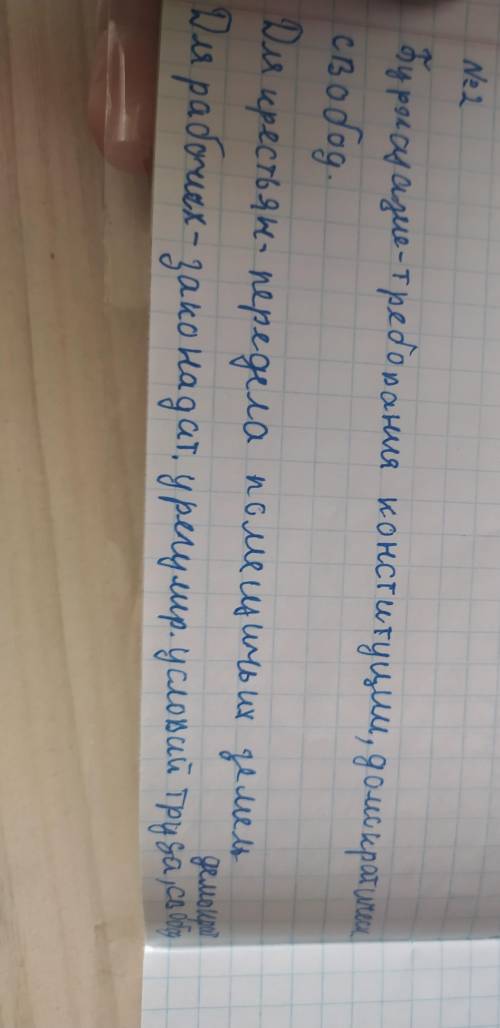 №2
Буржуазие-требования конституции, домократичеи
свобод.
Для крестьян- передела помещичьих земель
Для рабочех-законадат. урегулир. условий труда, свобод
демократ